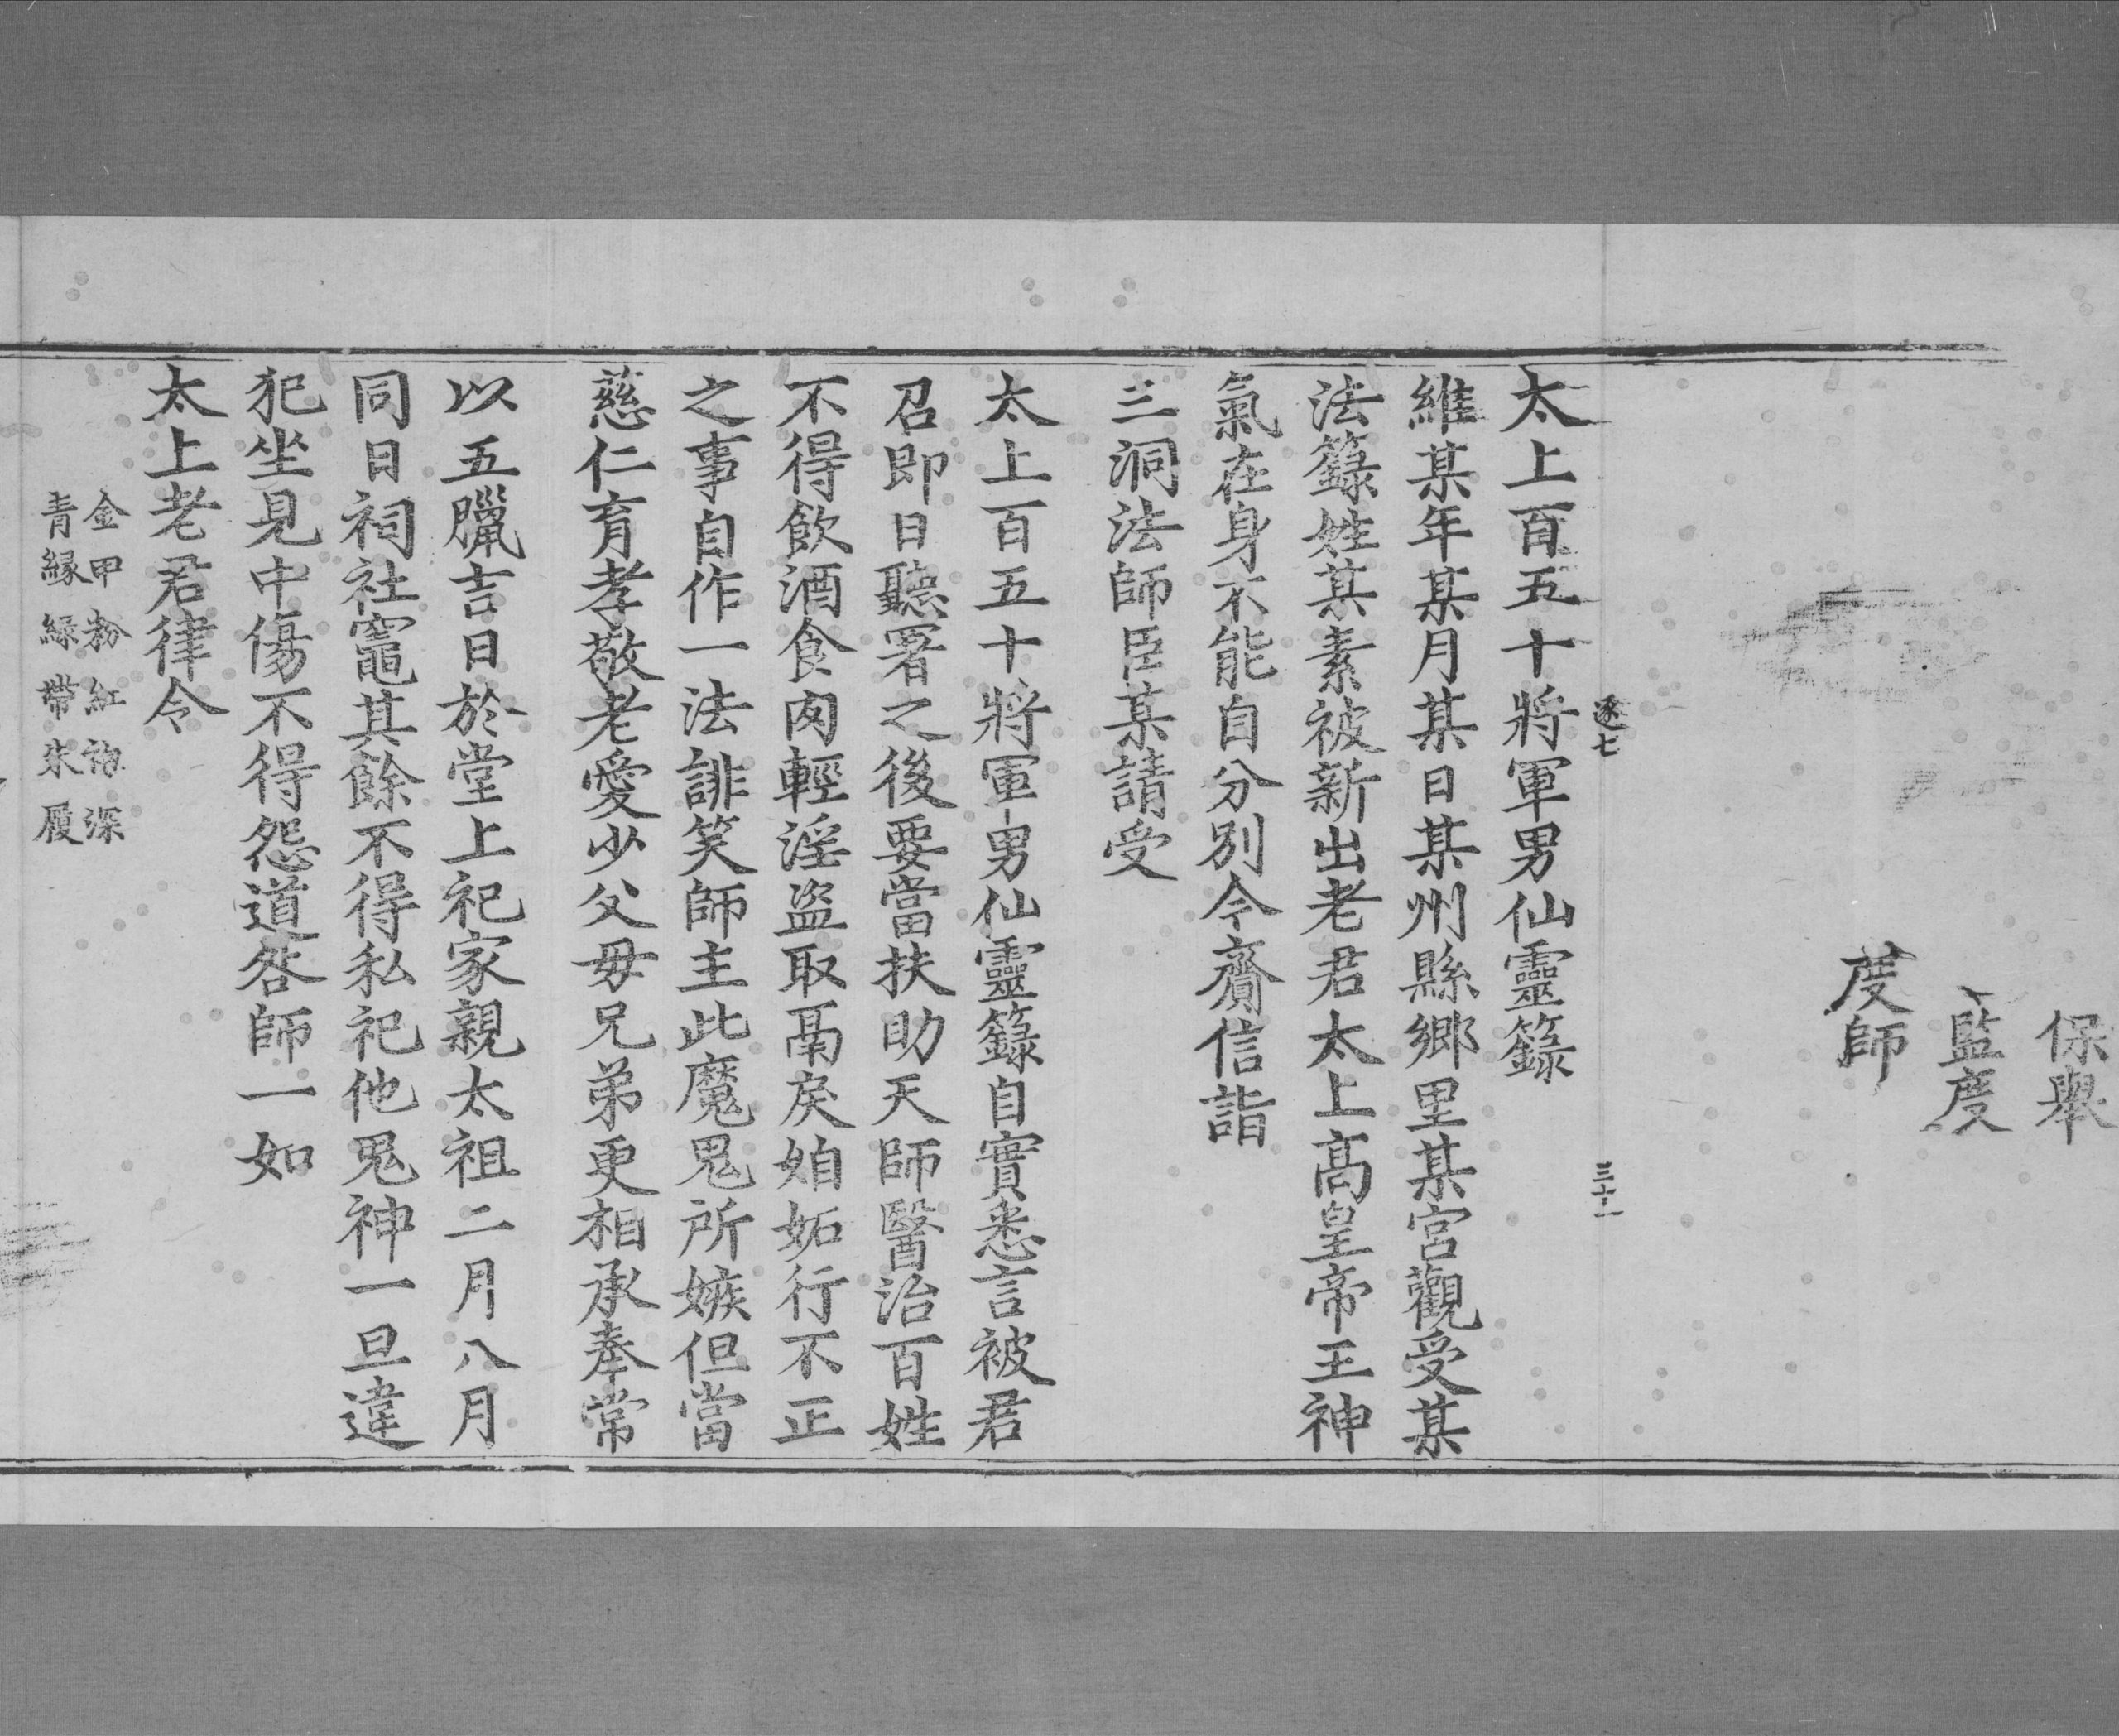 保舉
監度
度師
逐七
三十一
太上百五十將軍男仙靈籙
維某年某月某日某州縣鄉里某宮觀受某
法籙姓某素被新出老君太上高皇帝王神
氣在身不能自分別今齎信詣
三洞法師臣某請受
太上百五十將軍男仙靈籙自實悉言被君
召即日聽署之後要當扶助天師醫治百姓
不得飲酒食肉輕淫盜取鬲戾妬行不正
之事自作一法誹笑師主此魔鬼所嫉但當
慈仁育孝敬老愛少父母兄弟更相承奉常
以五臘吉日於堂上祀家親太祖二月八月
同日祠社竈其餘不得私祀他鬼神一旦違
犯坐見中傷不得怨道咎師一如
太上老君律令
金甲粉紅袍深
青緣綠帶朱履